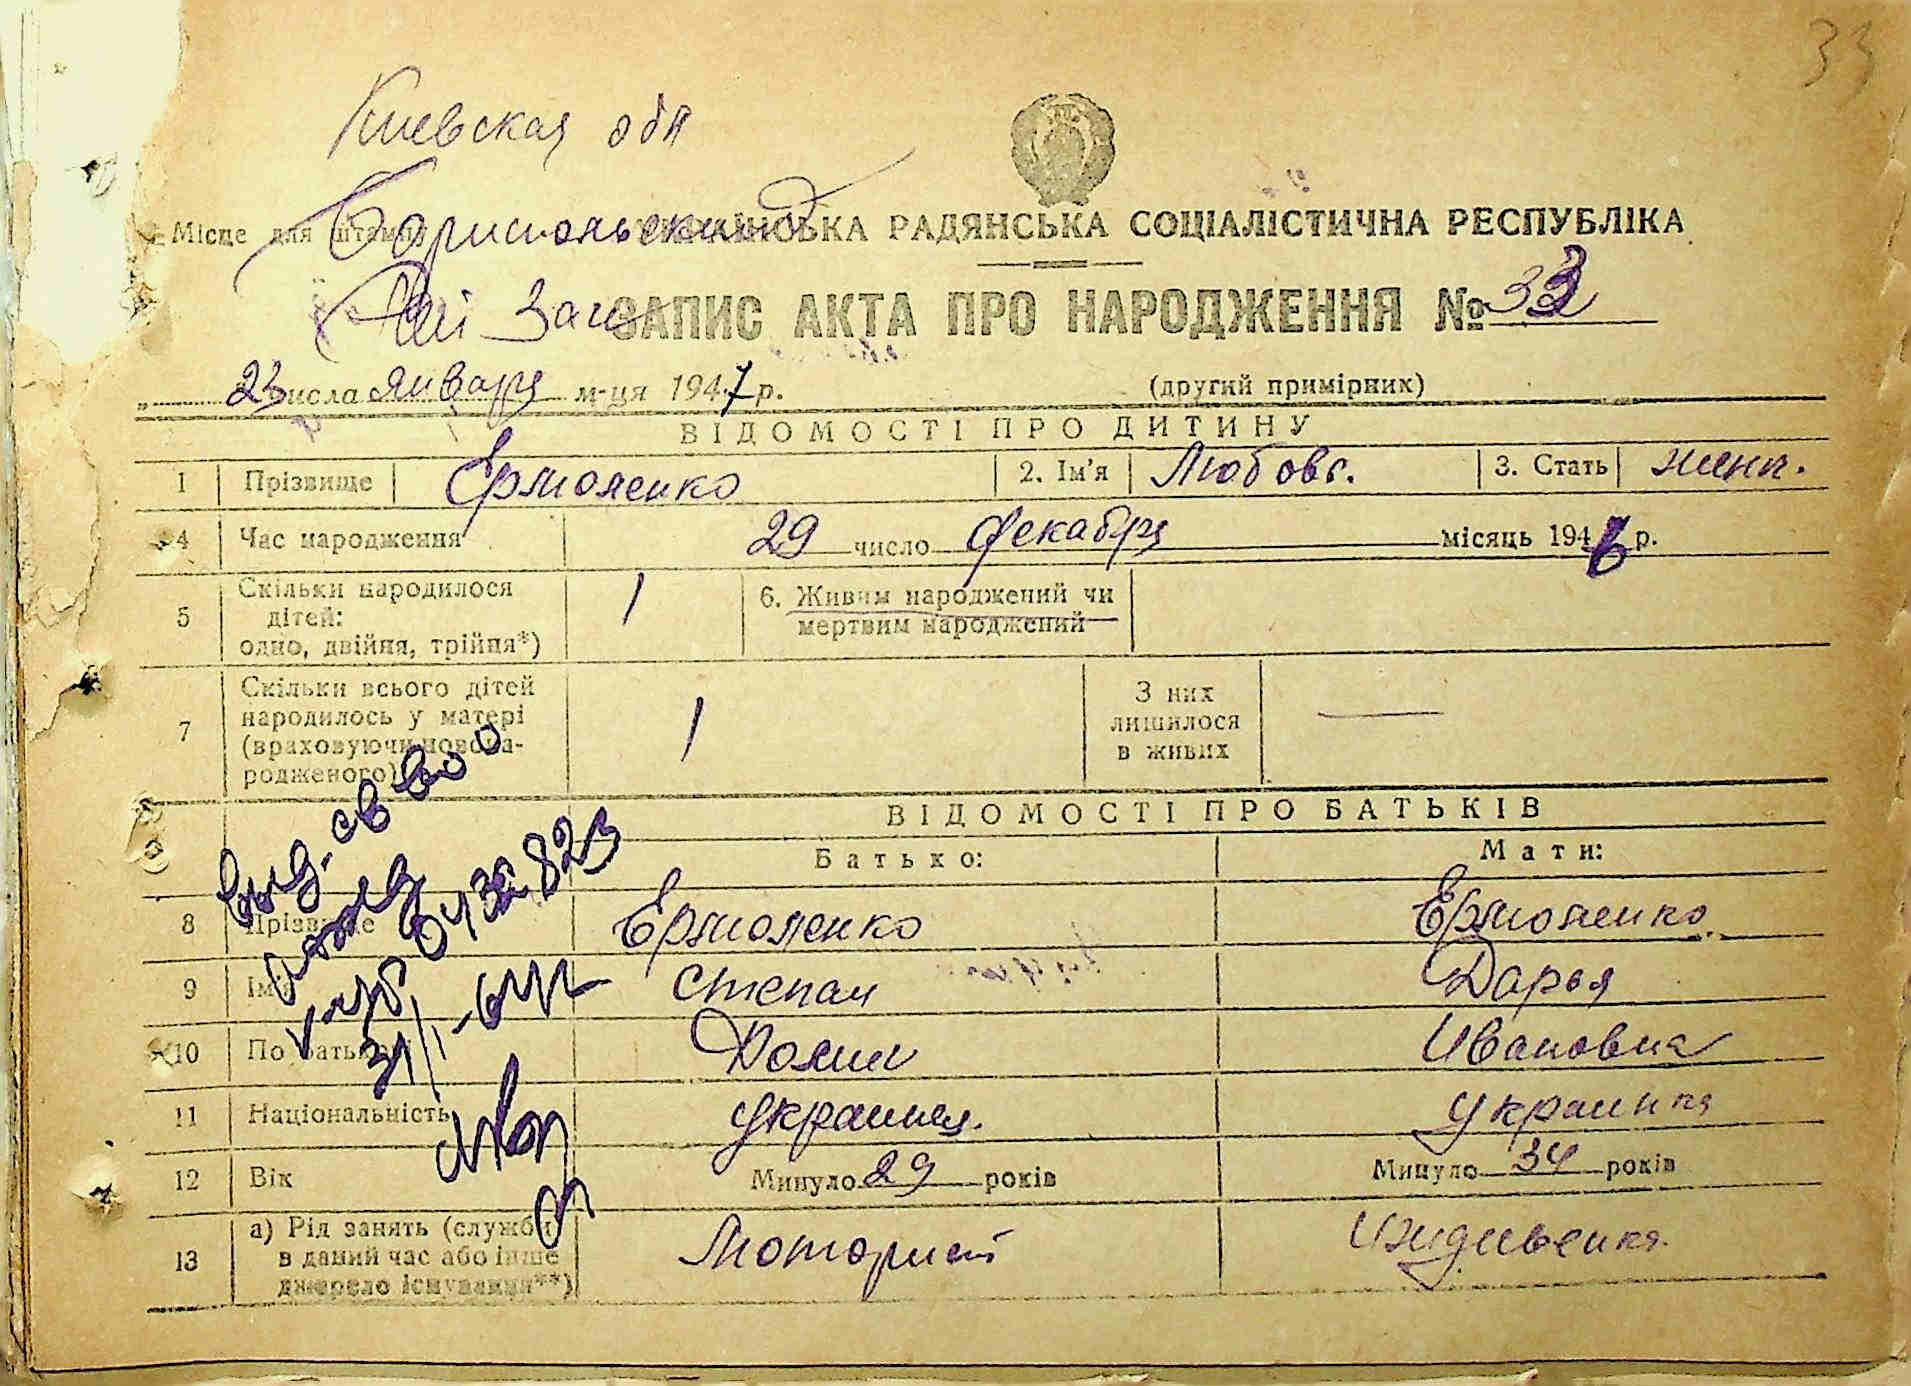 33
Киевская обл
Місце для штампу Бориспольский УКРАЇНСЬКА РАДЯНСЬКА СОЦІАЛІСТИЧНА РЕСПУБЛІКА
Рай Загс ЗАПИС АКТА ПРО НАРОДЖЕННЯ № 33
„ 23 числа января м-ця 1947 р. (другий примірник)
ВІДОМОСТІ ПРО ДИТИНУ
1 Прізвище Ермоленко 2. Ім'я Любовь. 3. Стать женп.
4 Час народження 29 число декабря місяць 1946 р.
5 Скільки народилося дітей: одно, двійня, трійня*) 1 6. Живим народжений чи мертвим народжений
7 Скільки всього дітей народилось у матері (враховуючи новона-родженого) 1 З них лишилося в живих —
ВІДОМОСТІ ПРО БАТЬКІВ
Батько: Мати:
8 Прізвище Ермоленко Ермоленко
9 Ім'я Степан Дарья
10 По батькові Ивановна
11 Національність украинец. украинка
12 Вік Минуло 29 років Минуло 34 років
13 а) Рід занять (служби в даний час або інше джерело існування**) Моторист Иждивенка.
выд. св во о
0432823
31/I-